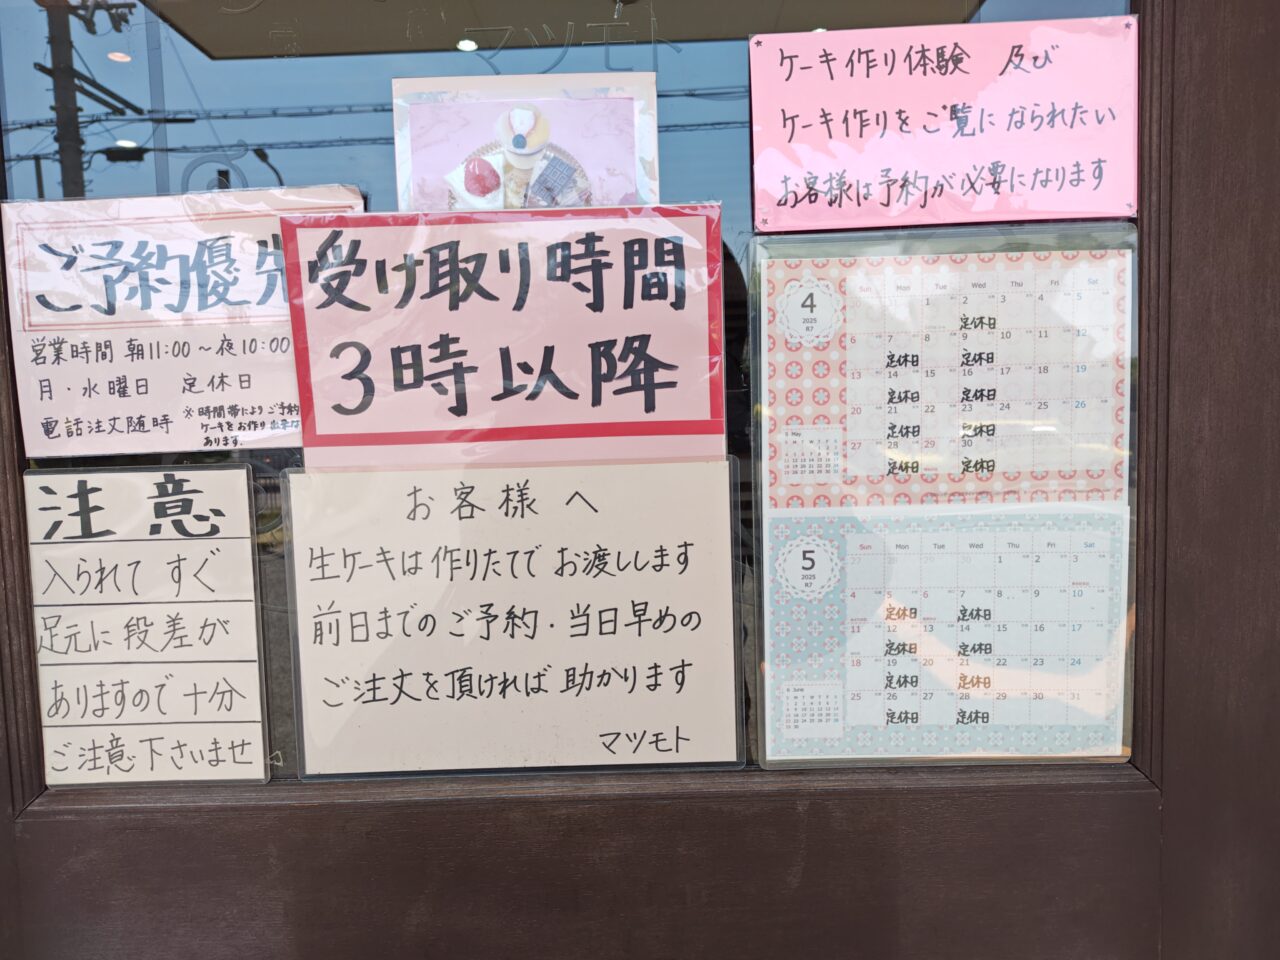 マツモト
ご予約優先
営業時間 朝11:00～夜10:00
月・水曜日 定休日
電話注文随時
※時間帯によりご予約
ケーキをお作り出来な
あります.
受け取り時間
3時以降
注意
入られてすぐ
足元に段差が
ありますので十分
ご注意下さいませ
お客様へ
生ケーキは作りたてでお渡しします
前日までのご予約・当日早めの
ご注文を頂ければ助かります
マツモト
ケーキ作り体験 及び
ケーキ作りをご覧になられたい
お客様は予約が必要になります
4
2025
R7
Sun Mon Tue Wed Thu Fri Sat
1 2 3 4 5
定休日
6 7 8 9 10 11 12
定休日 定休日
13 14 15 16 17 18 19
定休日 定休日
20 21 22 23 24 25 26
定休日 定休日
27 28 29 30
定休日 定休日
5 May
5
2025
R7
Sun Mon Tue Wed Thu Fri Sat
1 2 3
4 5 6 7 8 9 10
定休日 定休日
11 12 13 14 15 16 17
定休日 定休日
18 19 20 21 22 23 24
定休日 定休日
25 26 27 28 29 30 31
定休日 定休日
6 June